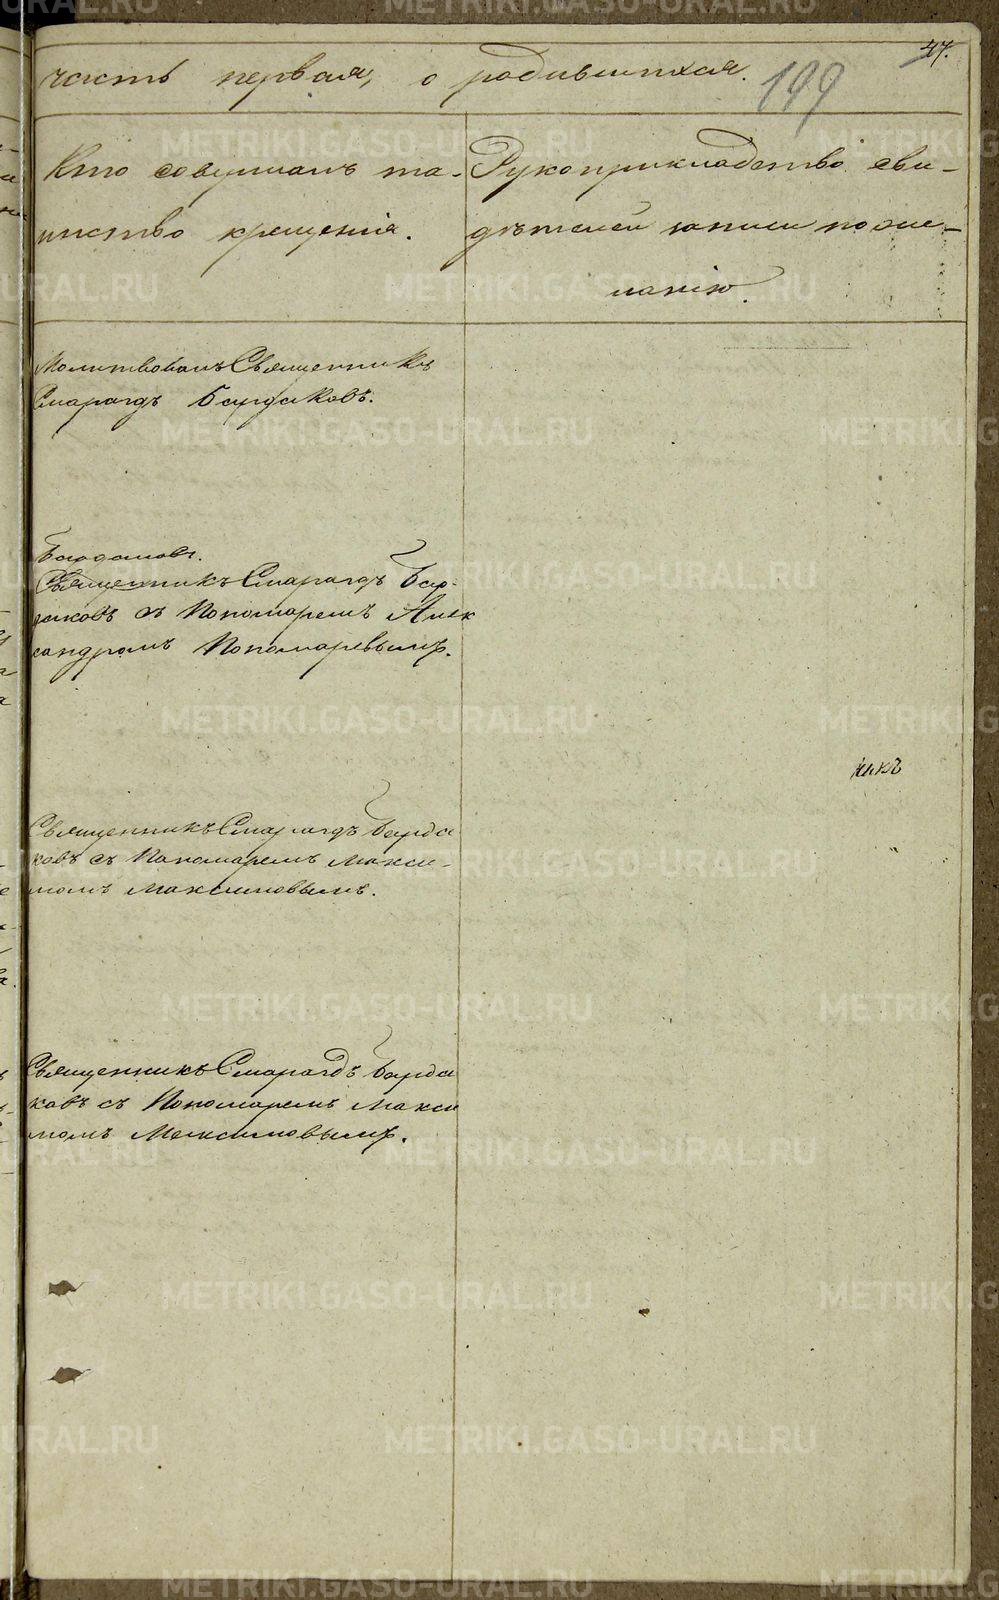 47.
199
часть первая, о родившихся.
Кто совершалъ та-
инство крещенія.
Рукоприкладство сви-
дѣтелей записи по же-
ланію.
Молитвовалъ Священникъ
Смарагдъ Бардаковъ.
Священникъ Смарагдъ Бар-
даковъ съ Пономаремъ Алек
сандромъ Пономаревымъ.
никъ
Священникъ Смарагдъ Барда
ковъ съ Пономаремъ Макси-
момъ Максимовымъ.
Священникъ Смарагдъ Барда
ковъ съ Пономаремъ Макси
момъ Максимовымъ.
METRIKI.GASO-URAL.RU